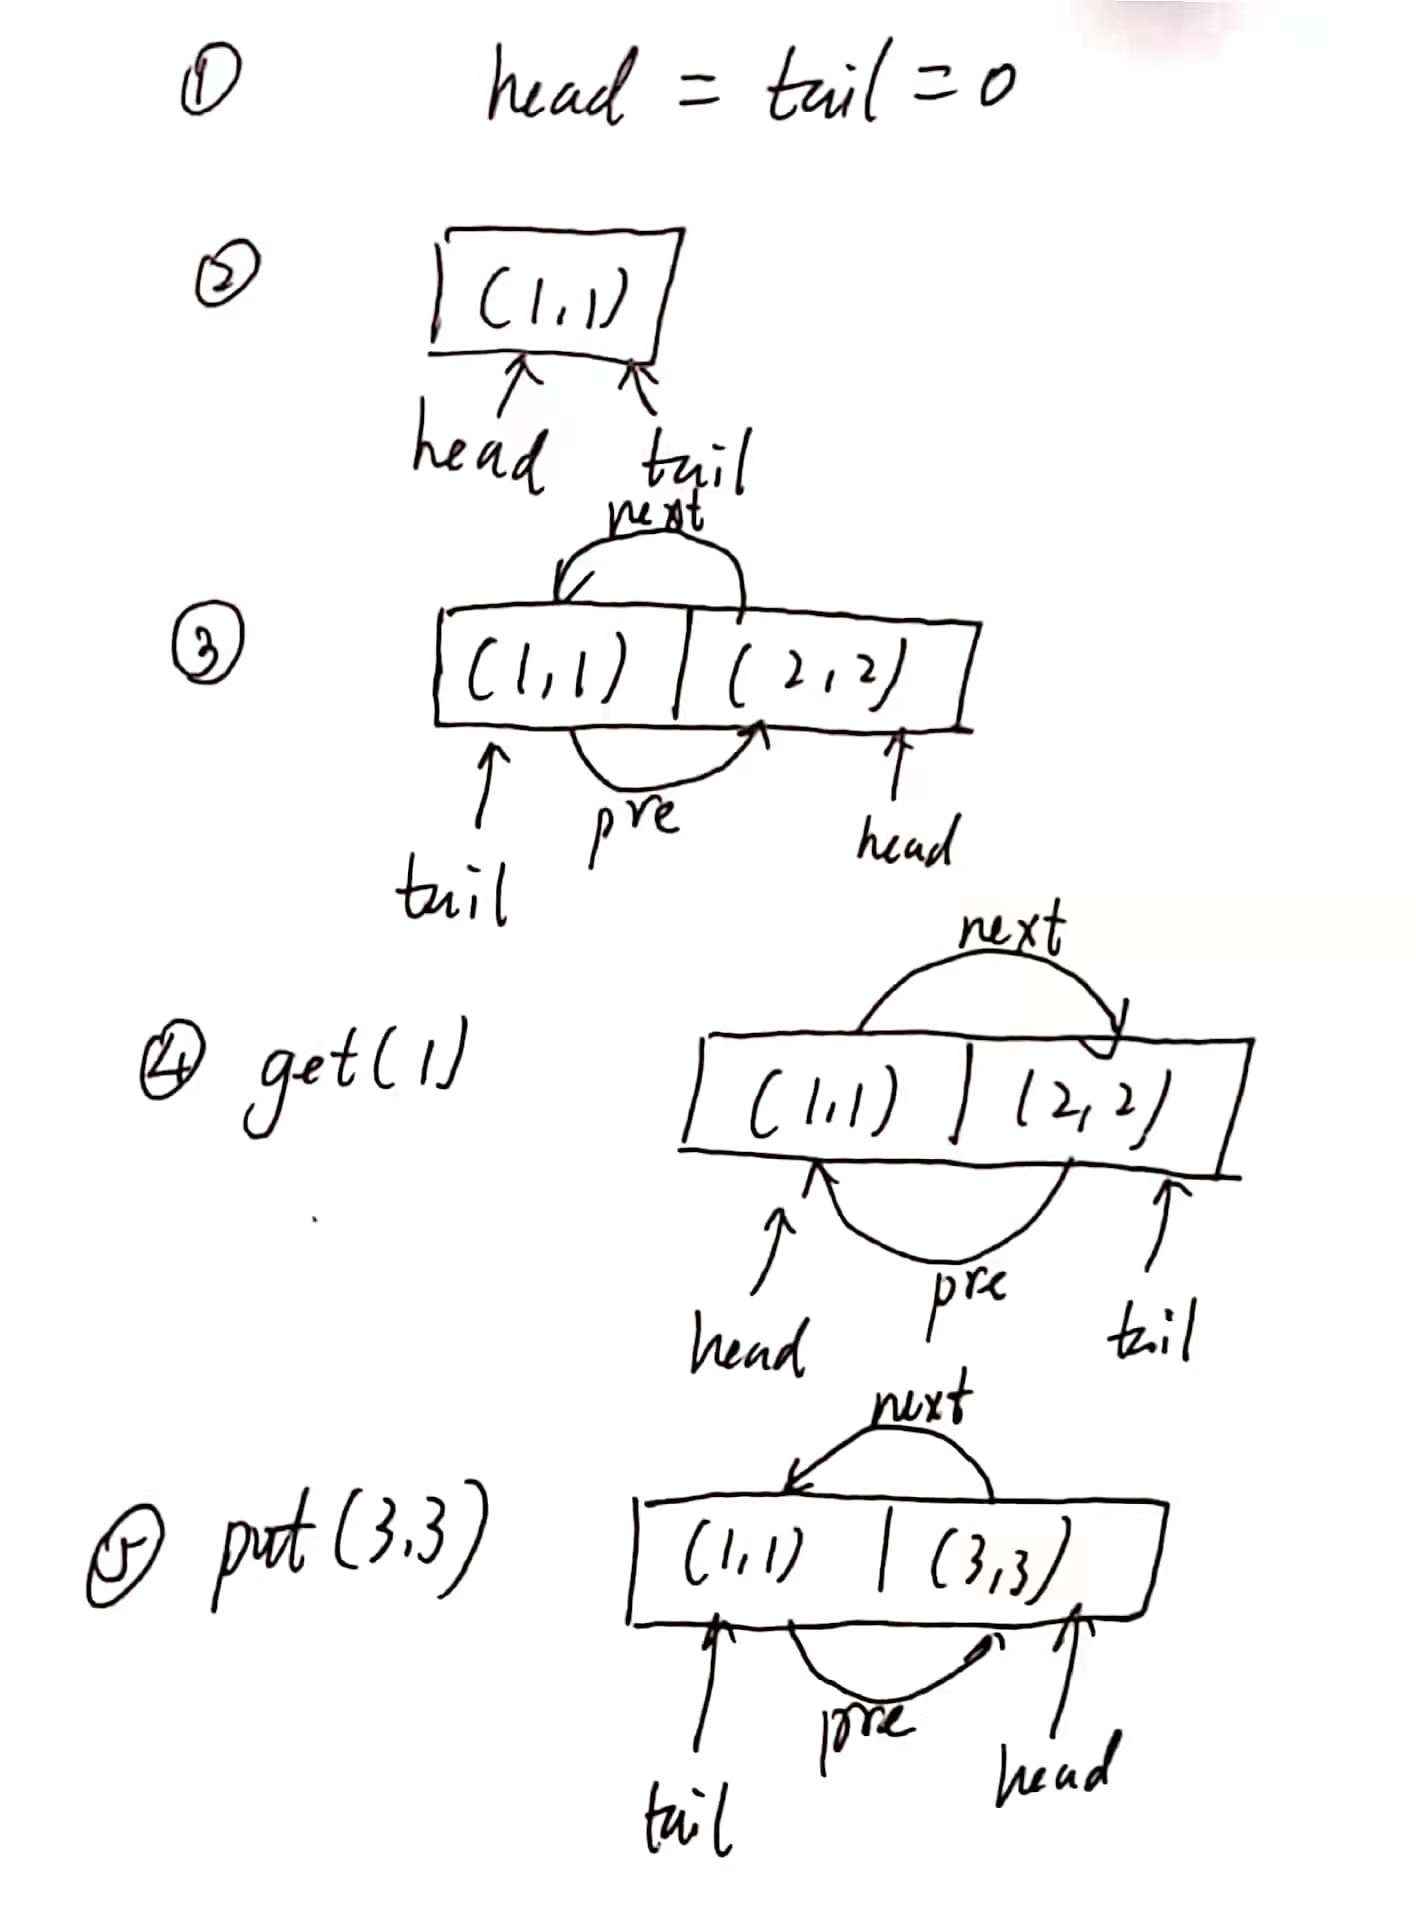 ① head = tail = 0
② (1,1)
head tail
next
③ (1,1) (2,2)
pre
head
tail
next
④ get(1) (1,1) (2,2)
pre
head tail
next
⑤ put (3,3) (1,1) (3,3)
pre
head
tail